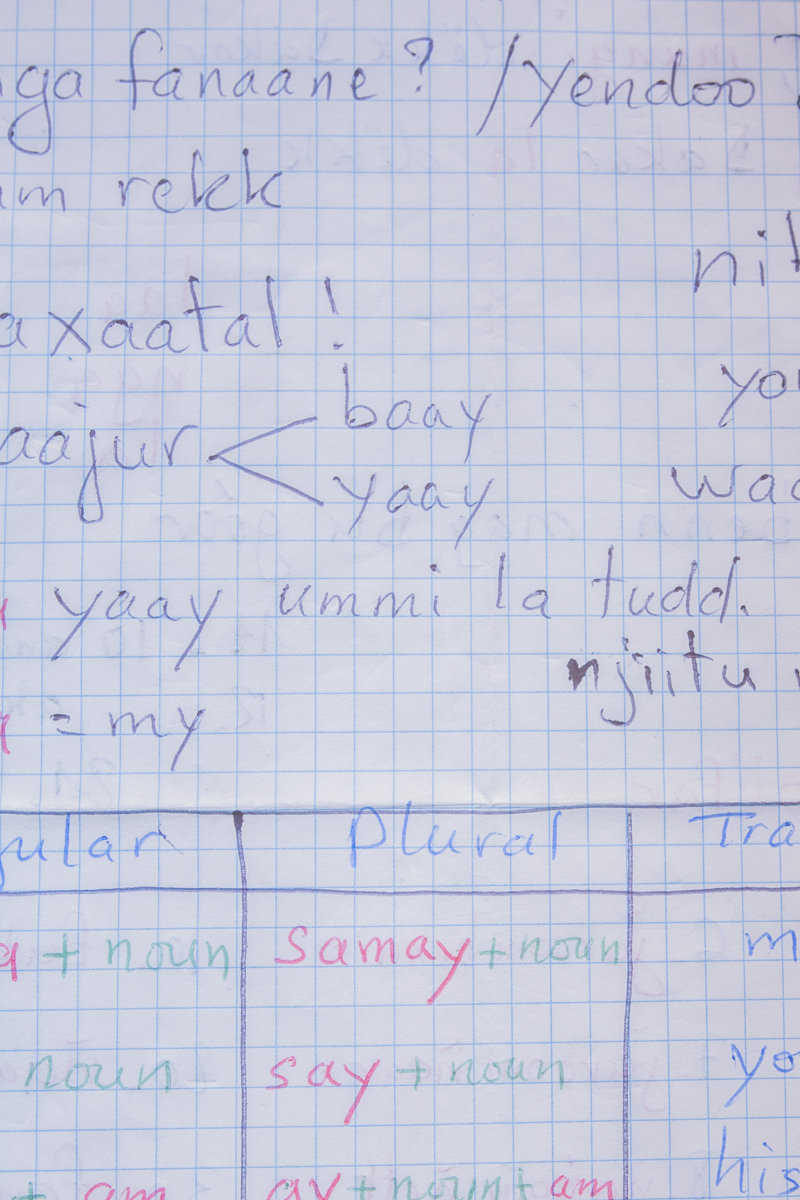 ga fanaane? / Yendoo?
m rekk
nit
axaatal!
baay
aajur <
yaay
waa
yaay ummi la tudd.
njiitu
= my
gular Plural Tra
a + noun samay + noun m
noun say + noun yo
+ am ay + noun + am his